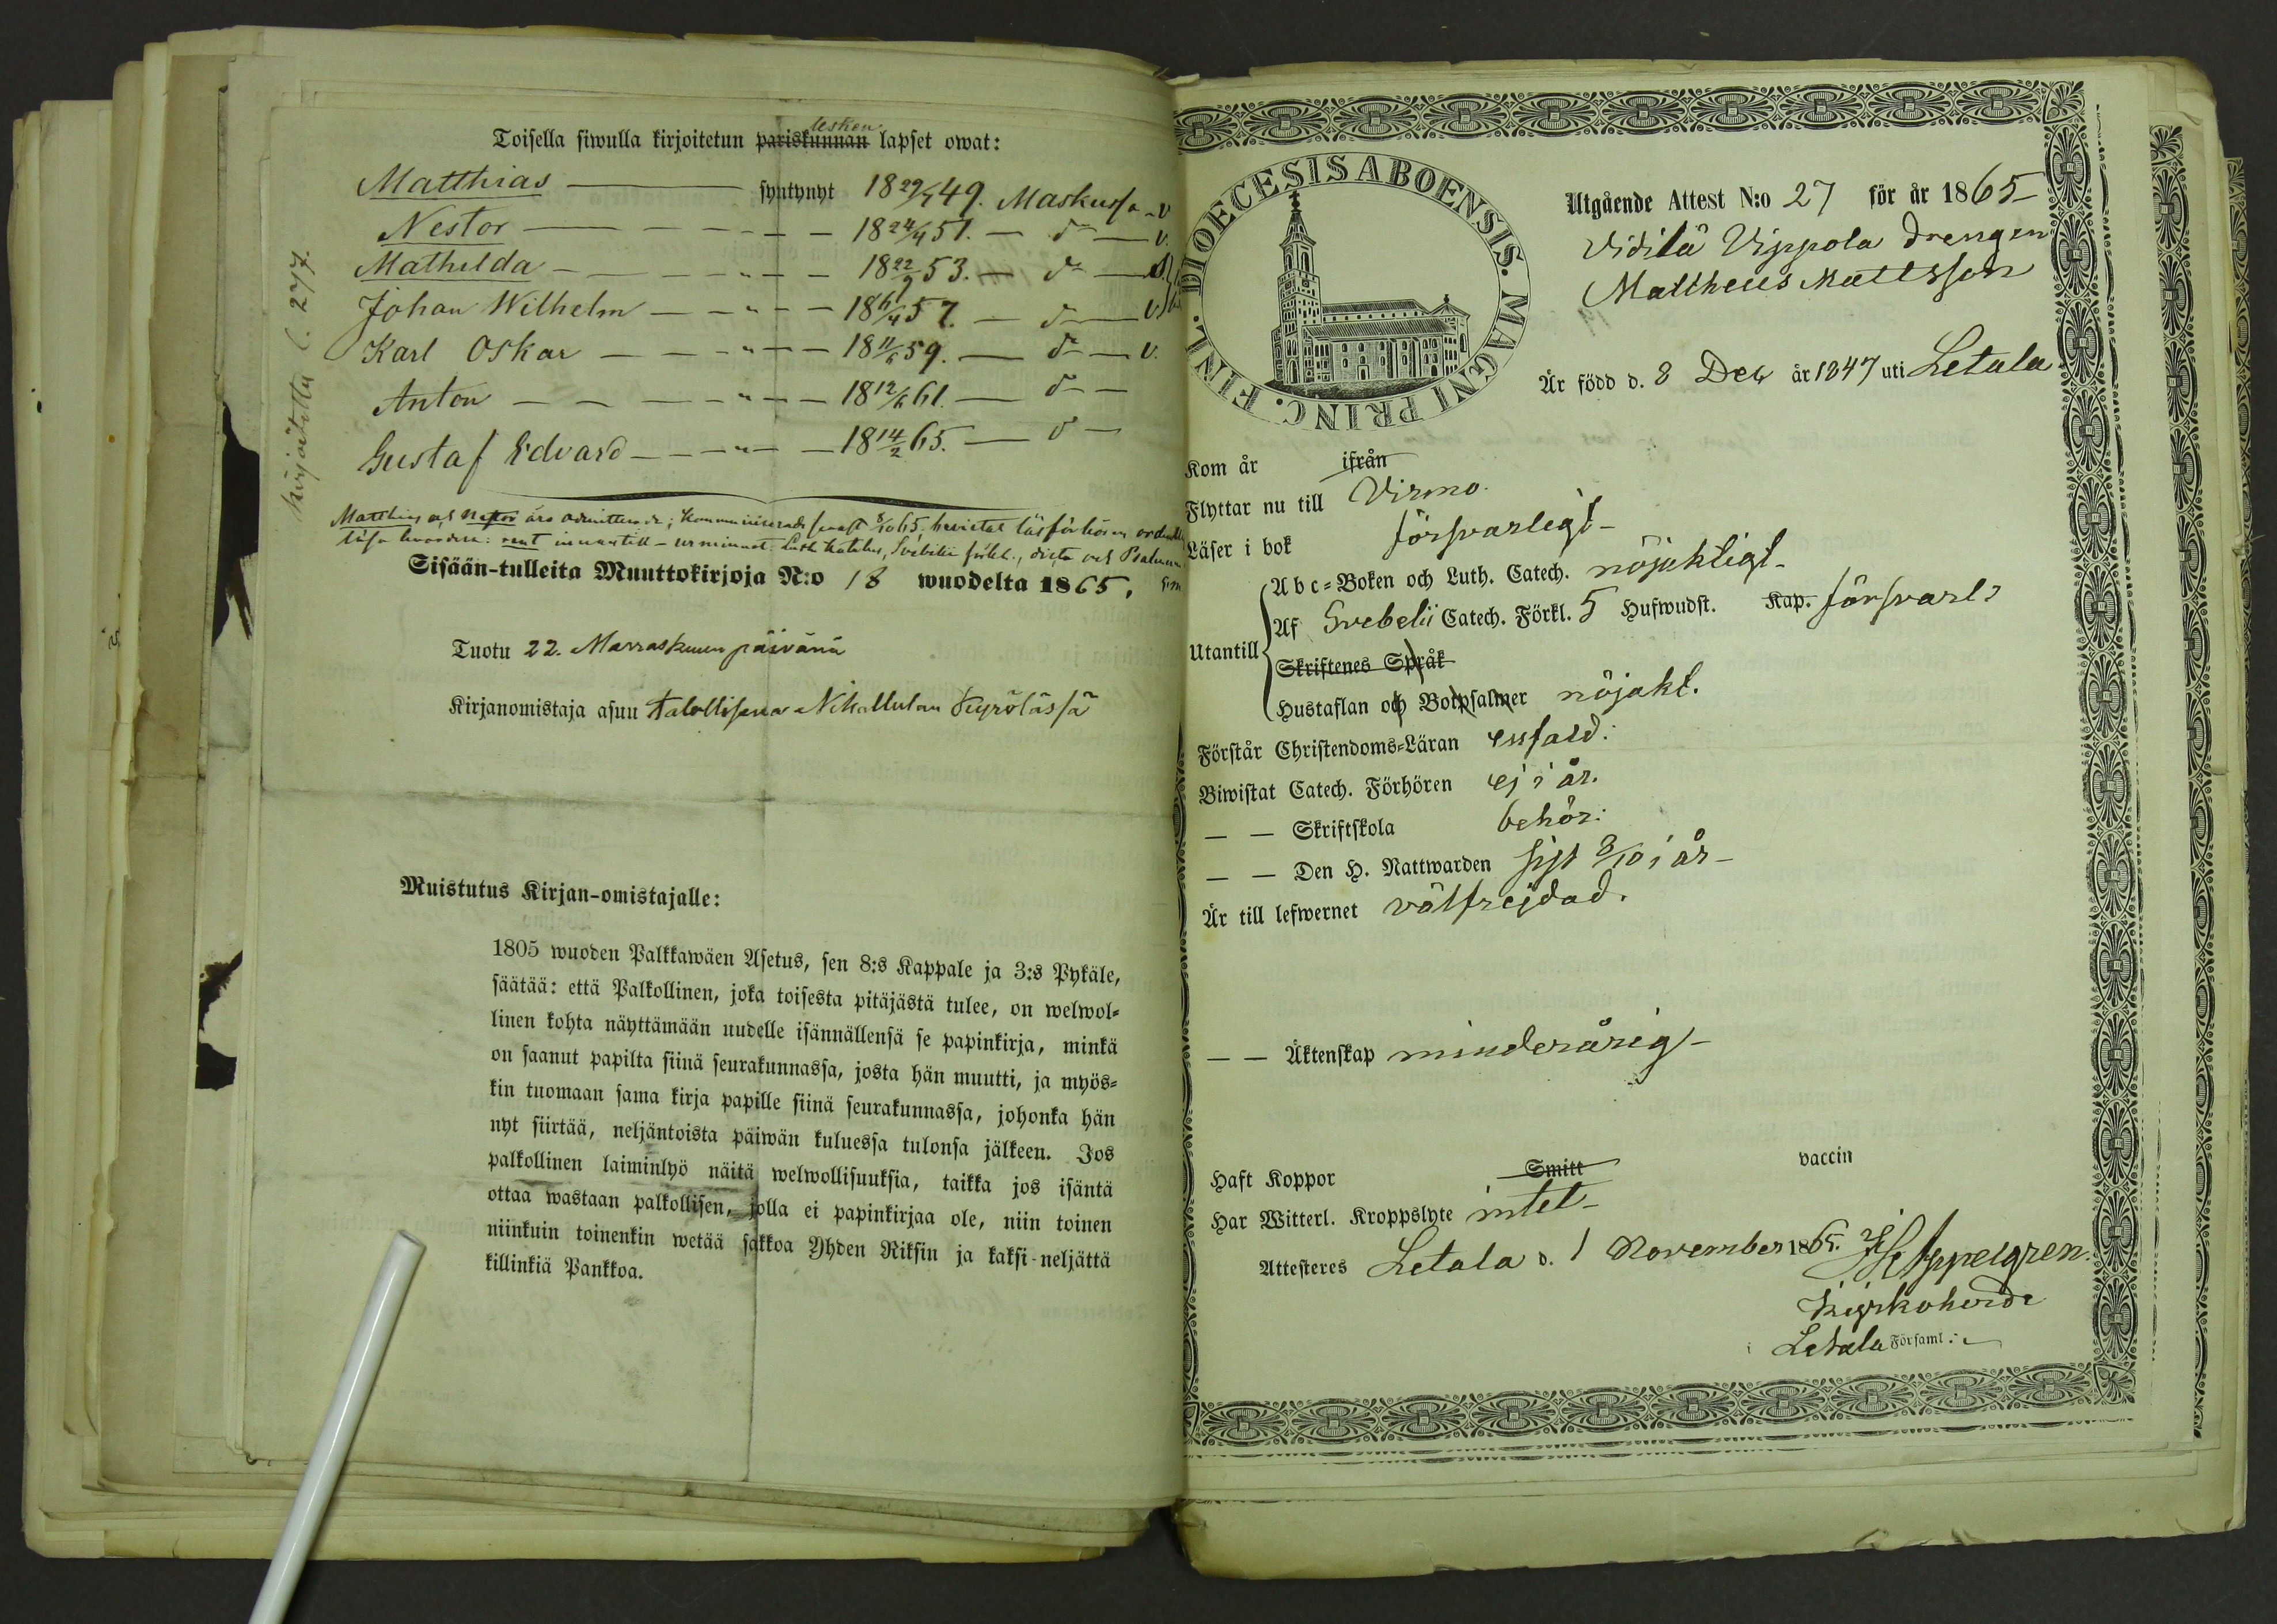 Toisella siwulla kirjoitetun pariskunnan lesken lapset owat:
Matthias syntynyt 18 29/5 49. Maskussa v
Nestor 18 24/4 51. do v.
Mathilda 18 22/9 53. do
Johan Wilhelm 18 6/4 57. do v
Karl Oskar 18 11/6 59. do v.
Anton 18 12/6 61. do
Gustaf Edvard 18 14/2 65. do
Kirjoitettu 277.
Matthias och Nestor äro admitterade; kommunicerade senast 8/10 65, bevistat läsförhören
läsa hvardera: rent innantill - ur minnet: Luth. Katekes, Svebelii förkl., och
Sisään-tulleita Muuttokirjoja N:o 18 wuodelta 1865.
Tuotu 22. Marraskuun päivänä
Kirjanomistaja asuu talollisena Nihattulan Kyrölässä
Muistutus Kirjan-omistajalle:
1805 wuoden Palkkawäen Asetus, sen 8:s Kappale ja 3:s Pykäle,
säätää: että Palkollinen, joka toisesta pitäjästä tulee, on welwol-
linen kohta näyttämään uudelle isännällensä se papinkirja, minkä
on saanut papilta siinä seurakunnassa, josta hän muutti, ja myös-
kin tuomaan sama kirja papille siinä seurakunnassa, johonka hän
nyt siirtää, neljäntoista päiwän kuluessa tulonsa jälkeen. Jos
palkollinen laiminlyö näitä welwollisuuksia, taikka jos isäntä
ottaa wastaan palkollisen, jolla ei papinkirjaa ole, niin toinen
niinkuin toinenkin wetää sakkoa Yhden Riksin ja kaksi-neljättä
killinkiä Pankkoa.
DIOECESIS ABOENSIS. MAGNI PRINC. FINL.
Utgående Attest N:o 27 för år 1865
Viditä Vippola drengen
Mattheus Mattsson
Är född d. 8 Dec år 1847 uti Letala
Kom år ifrån
Flyttar nu till Virmo.
Läser i bok försvarligt
Utantill
Abc-Boken och Luth. Catech. nöjaktigt
Af Svebelii Catech. Förkl. 5 Hufwudst. Kap. försvarl:
Skriftenes Språk
Hustaflan och Botpsalmer nöjakt.
Förstår Christendoms-Läran enfald:
Biwistat Catech. Förhören ej i år.
— — Skriftskola behör:
— — Den H. Nattwarden sist 8/10 i år
Är till lefwernet välfrejdad.
— — Äktenskap minderårig
Haft Koppor Smitt vaccin
Har Witterl. Kroppslyte intet
Attesteres Letala d. 1 November 1865. Appelgren.
Kyrkoherde
i Letala Församl.